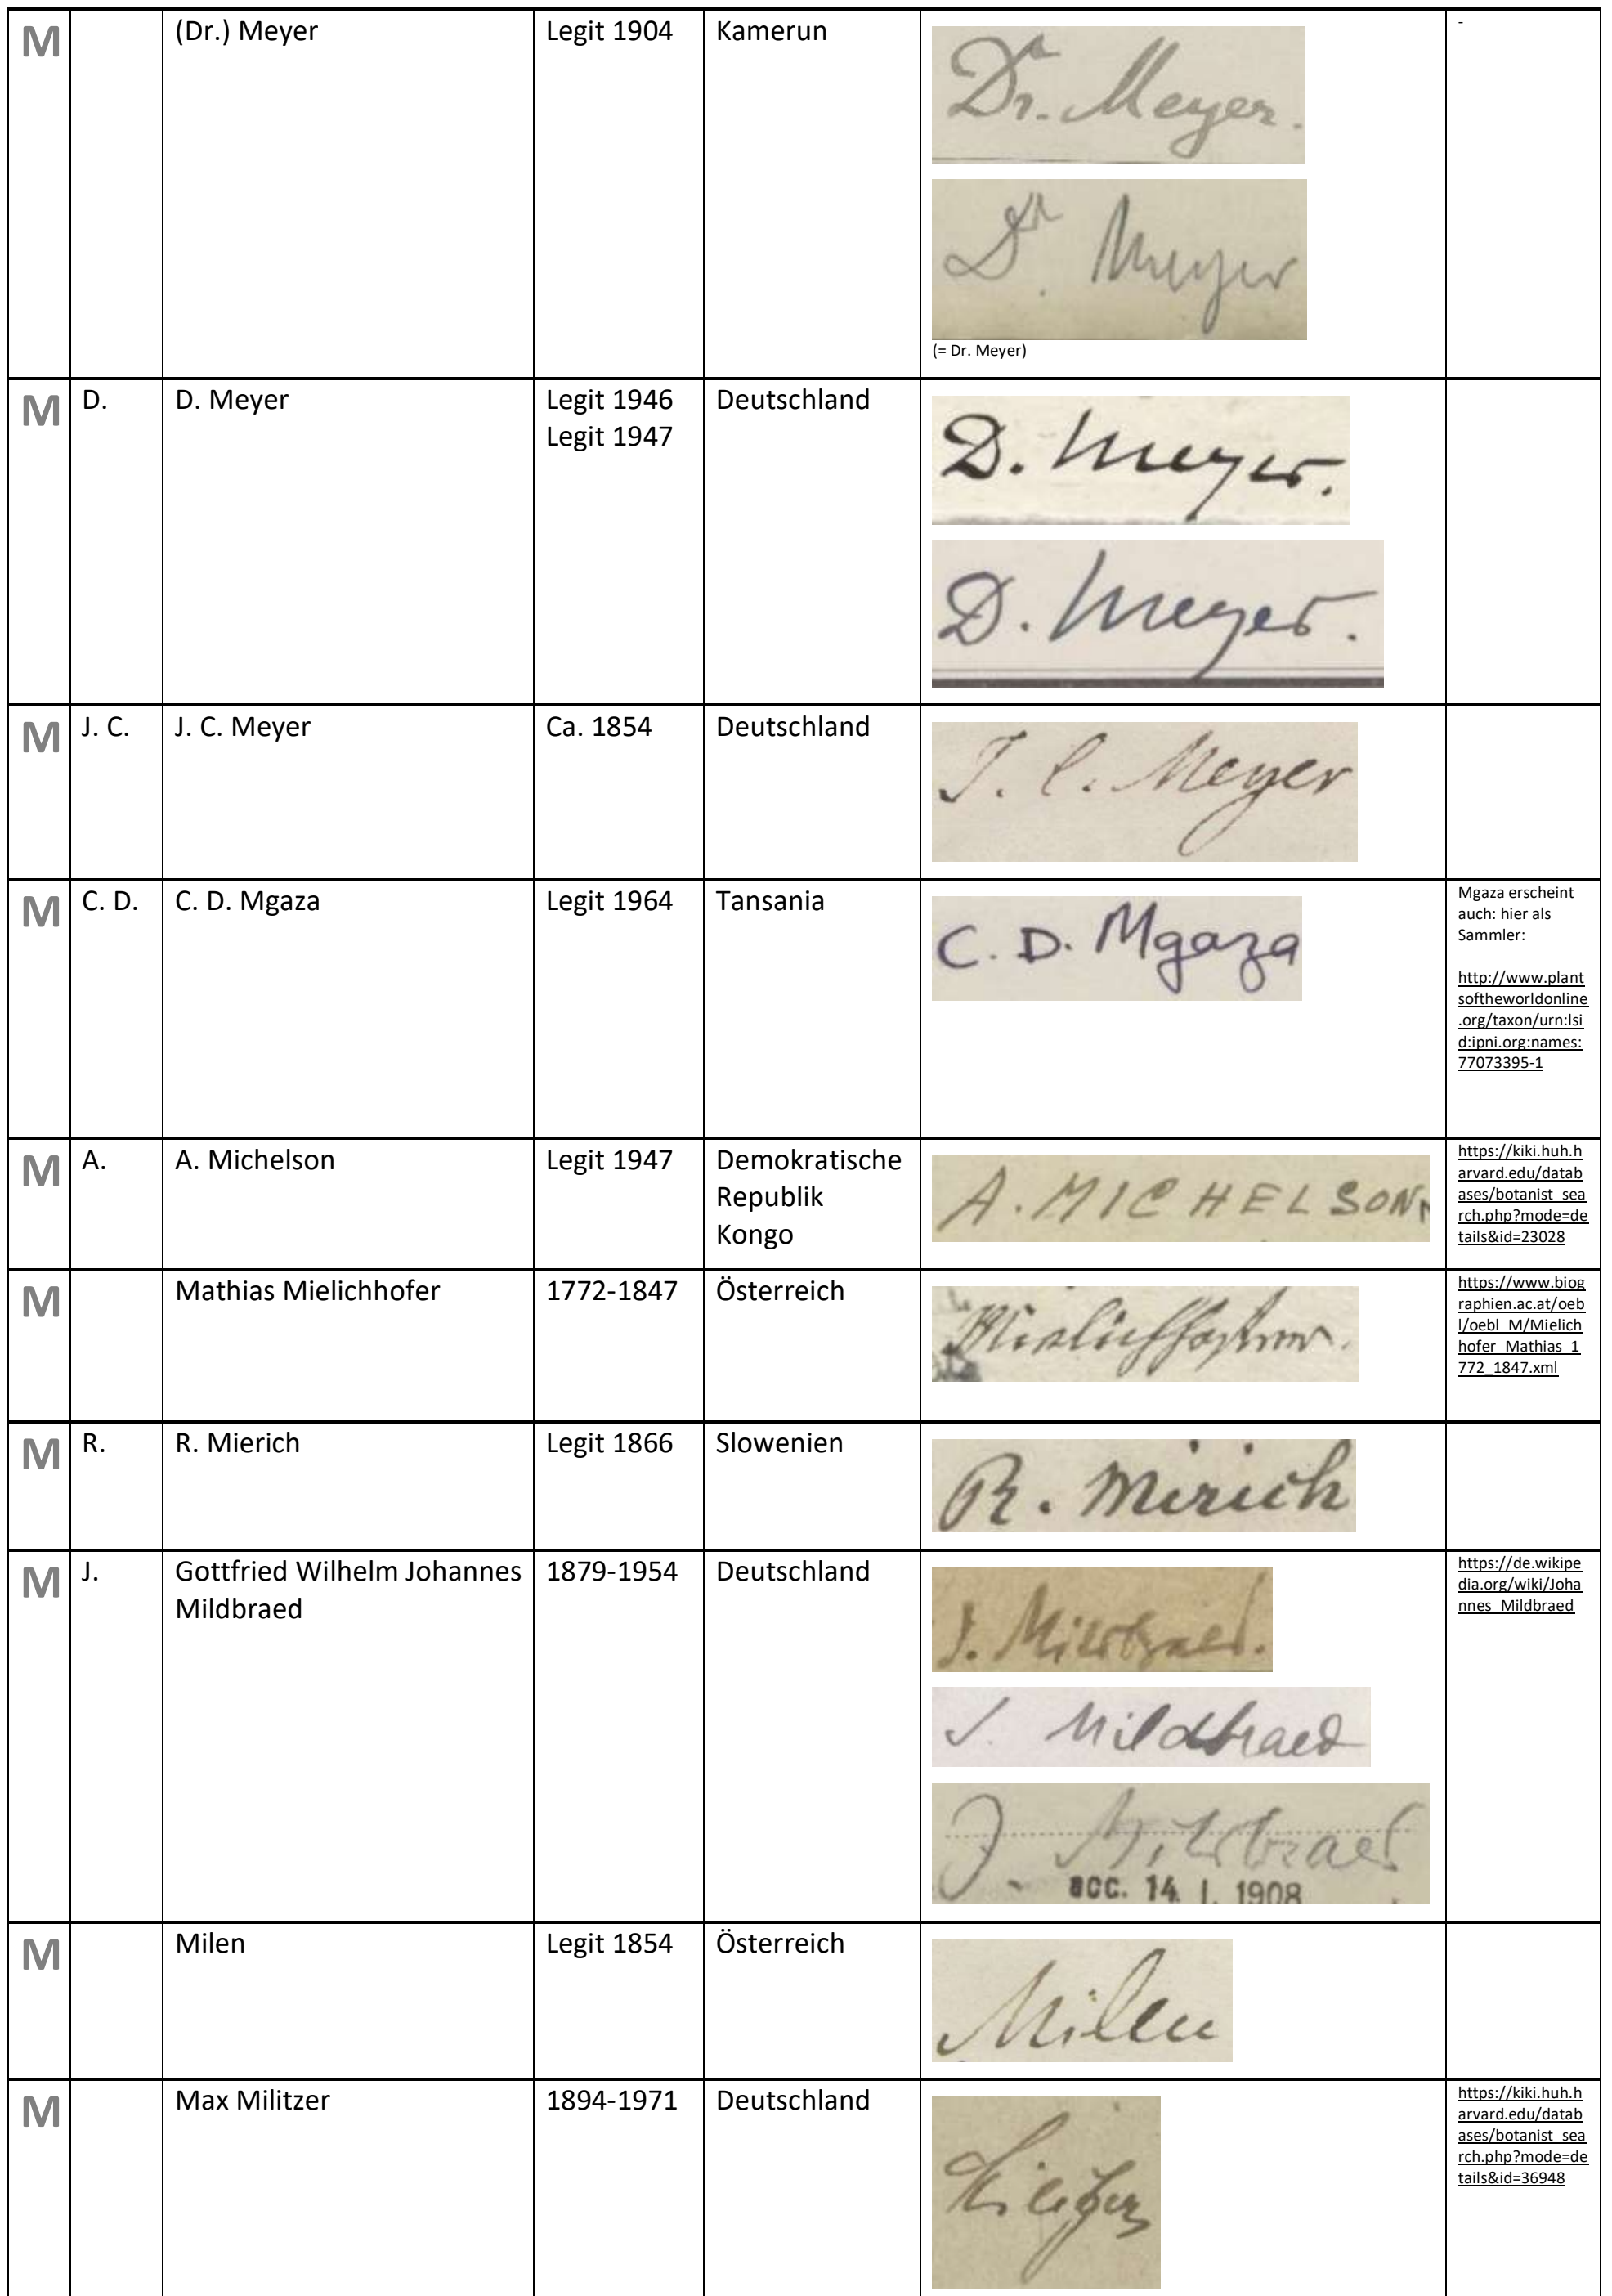 M
(Dr.) Meyer
Legit 1904
Kamerun
Dr. Meyer.
Dr. Meyer
(= Dr. Meyer)
-
M
D.
D. Meyer
Legit 1946
Legit 1947
Deutschland
D. Meyer.
D. Meyer.
M
J. C.
J. C. Meyer
Ca. 1854
Deutschland
J. C. Meyer
M
C. D.
C. D. Mgaza
Legit 1964
Tansania
C. D. Mgaza
Mgaza erscheint
auch: hier als
Sammler:
http://www.plant
softheworldonline
.org/taxon/urn:lsi
d:ipni.org:names:
77073395-1
M
A.
A. Michelson
Legit 1947
Demokratische
Republik
Kongo
A. MICHELSON
https://kiki.huh.h
arvard.edu/datab
ases/botanist_sea
rch.php?mode=de
tails&id=23028
M
Mathias Mielichhofer
1772-1847
Österreich
Mielichhofer.
https://www.biog
raphien.ac.at/oeb
l/oebl_M/Mielich
hofer_Mathias_1
772_1847.xml
M
R.
R. Mierich
Legit 1866
Slowenien
R. Mierich
M
J.
Gottfried Wilhelm Johannes
Mildbraed
1879-1954
Deutschland
J. Mildbraed.
J. Mildbraed
J. Mildbraed
acc. 14. I. 1908
https://de.wikipe
dia.org/wiki/Joha
nnes_Mildbraed
M
Milen
Legit 1854
Österreich
Milen
M
Max Militzer
1894-1971
Deutschland
https://kiki.huh.h
arvard.edu/datab
ases/botanist_sea
rch.php?mode=de
tails&id=36948